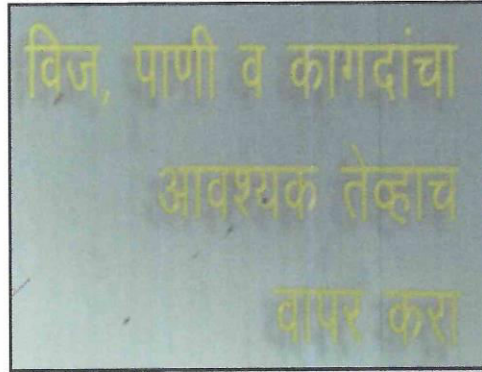 विज, पाणी व कागदांचा
आवश्यक तेव्हाच
वापर करा